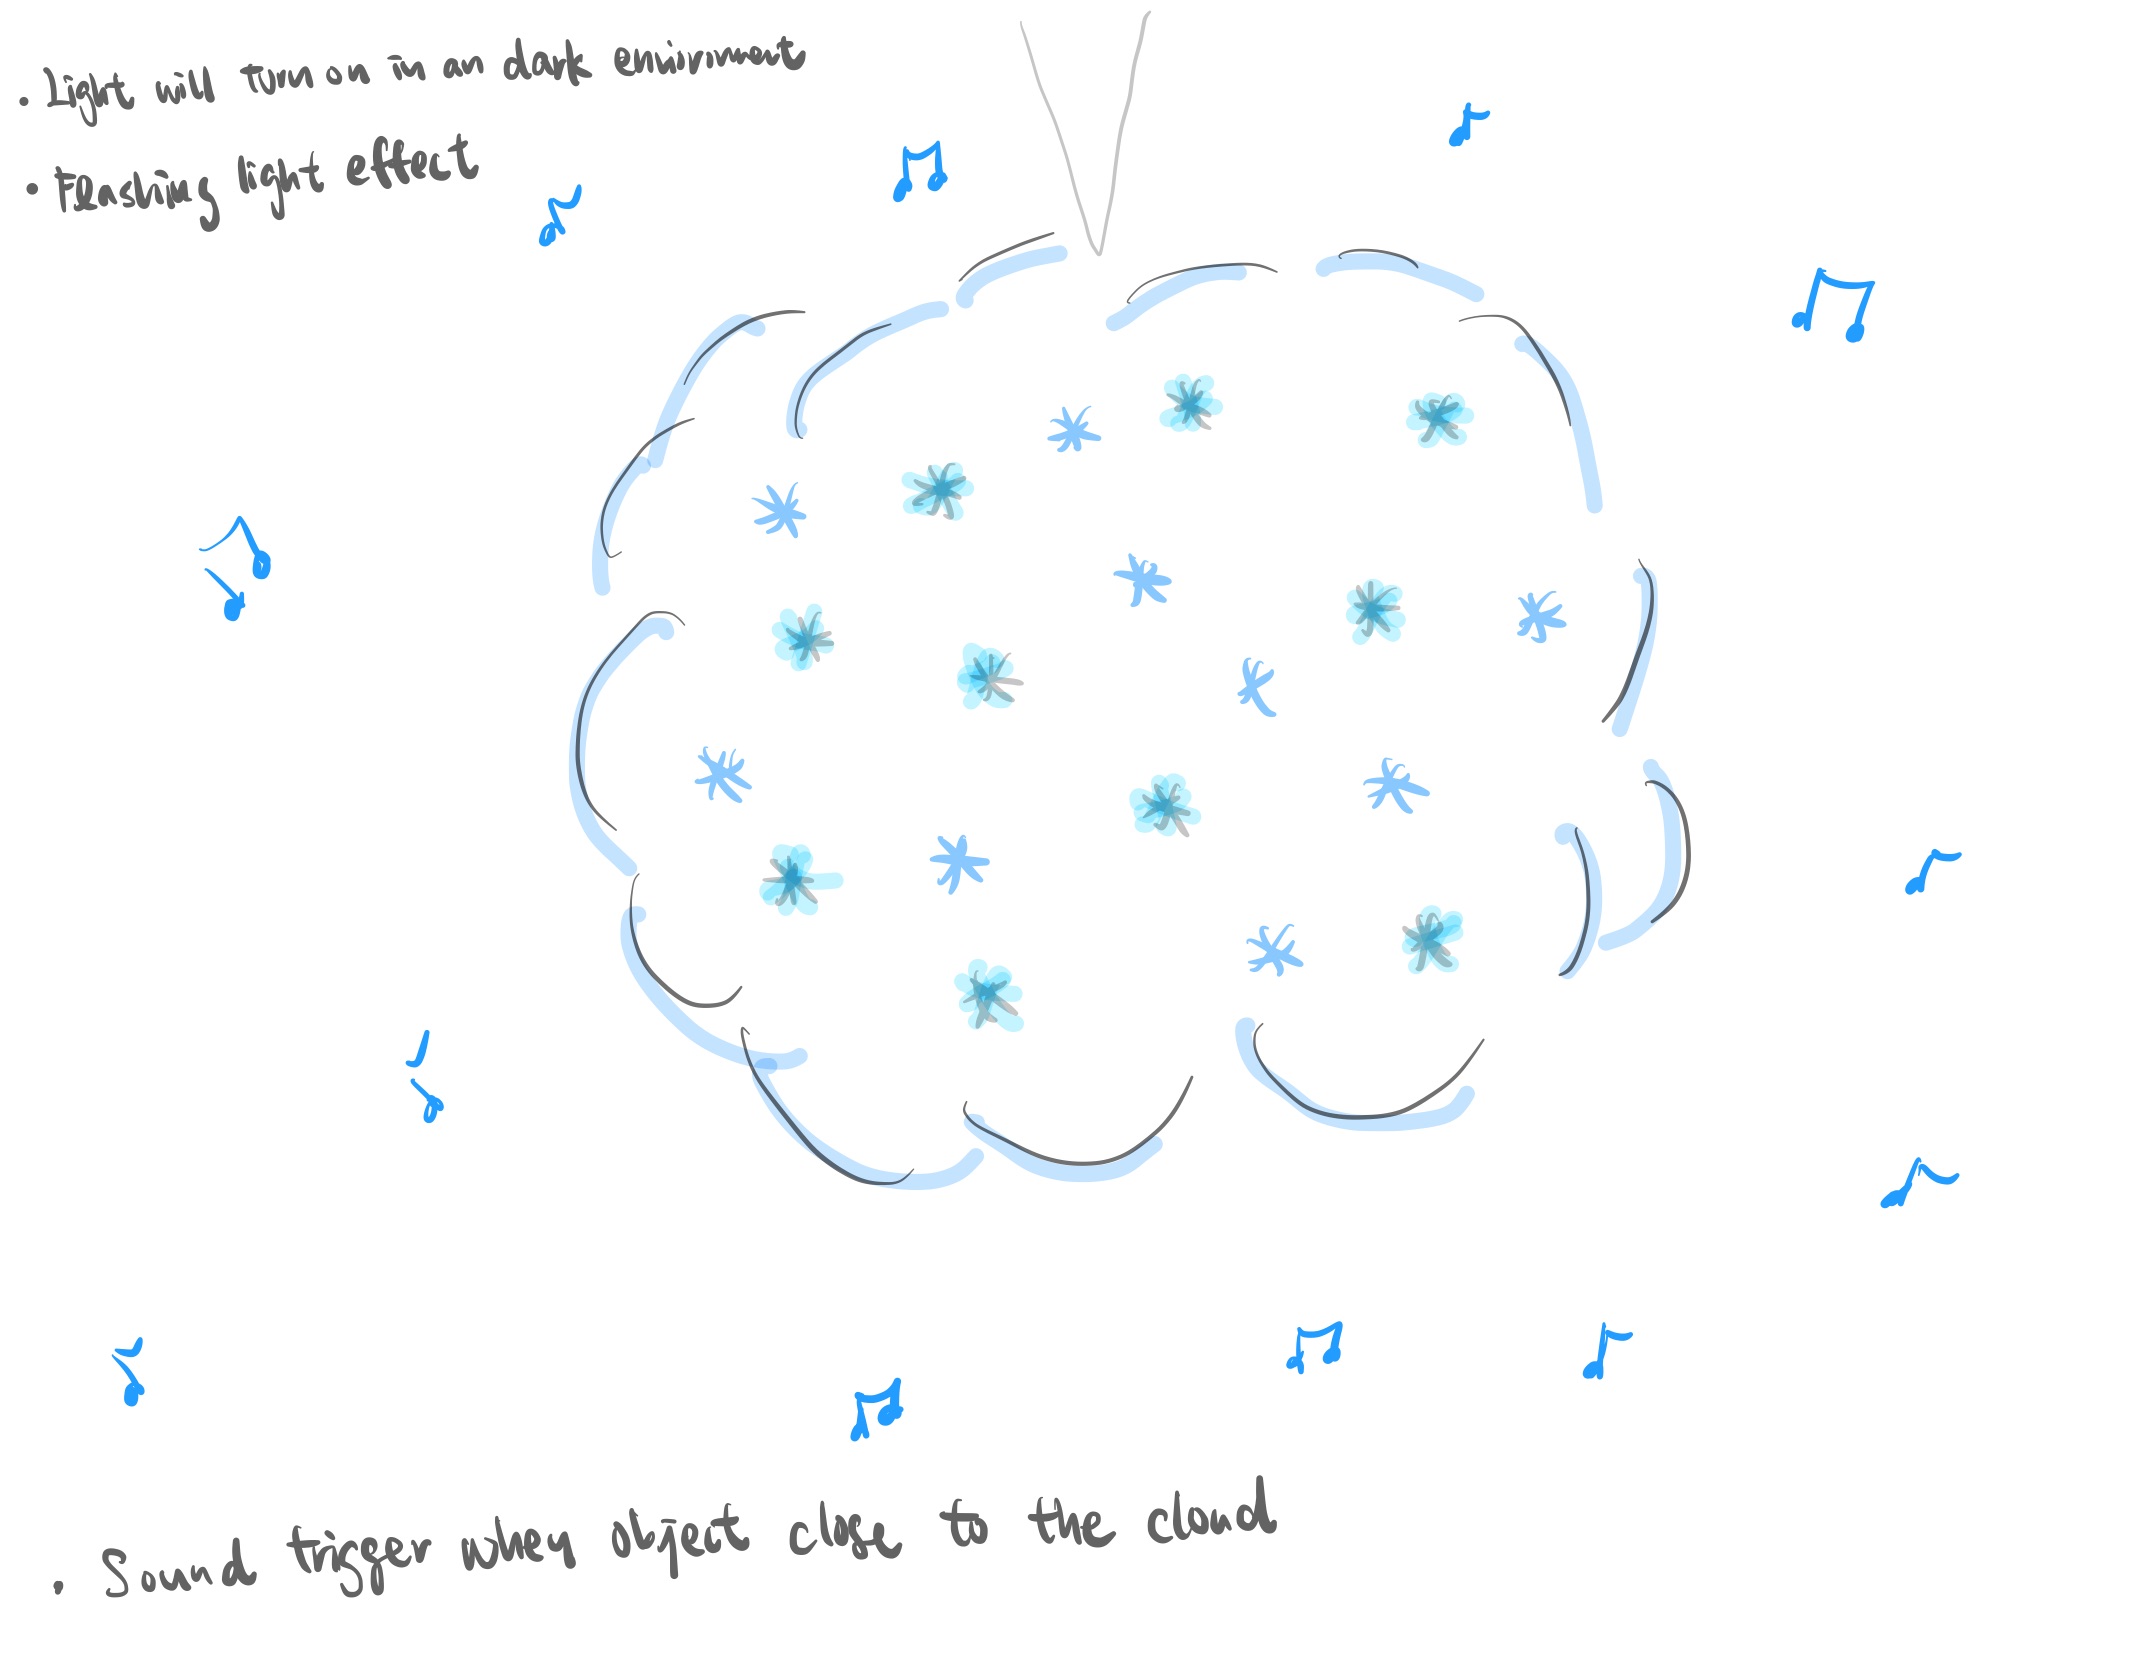 . Light will turn on in an dark enviroment
• Flashing light effect
. Sound trigger when object close to the cloud